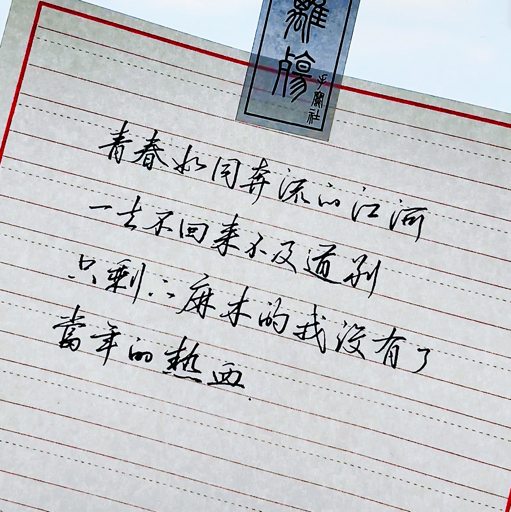 離殤
青春如同奔流的江河
一去不回来不及道别
只剩下麻木的我没有了
當年的热血